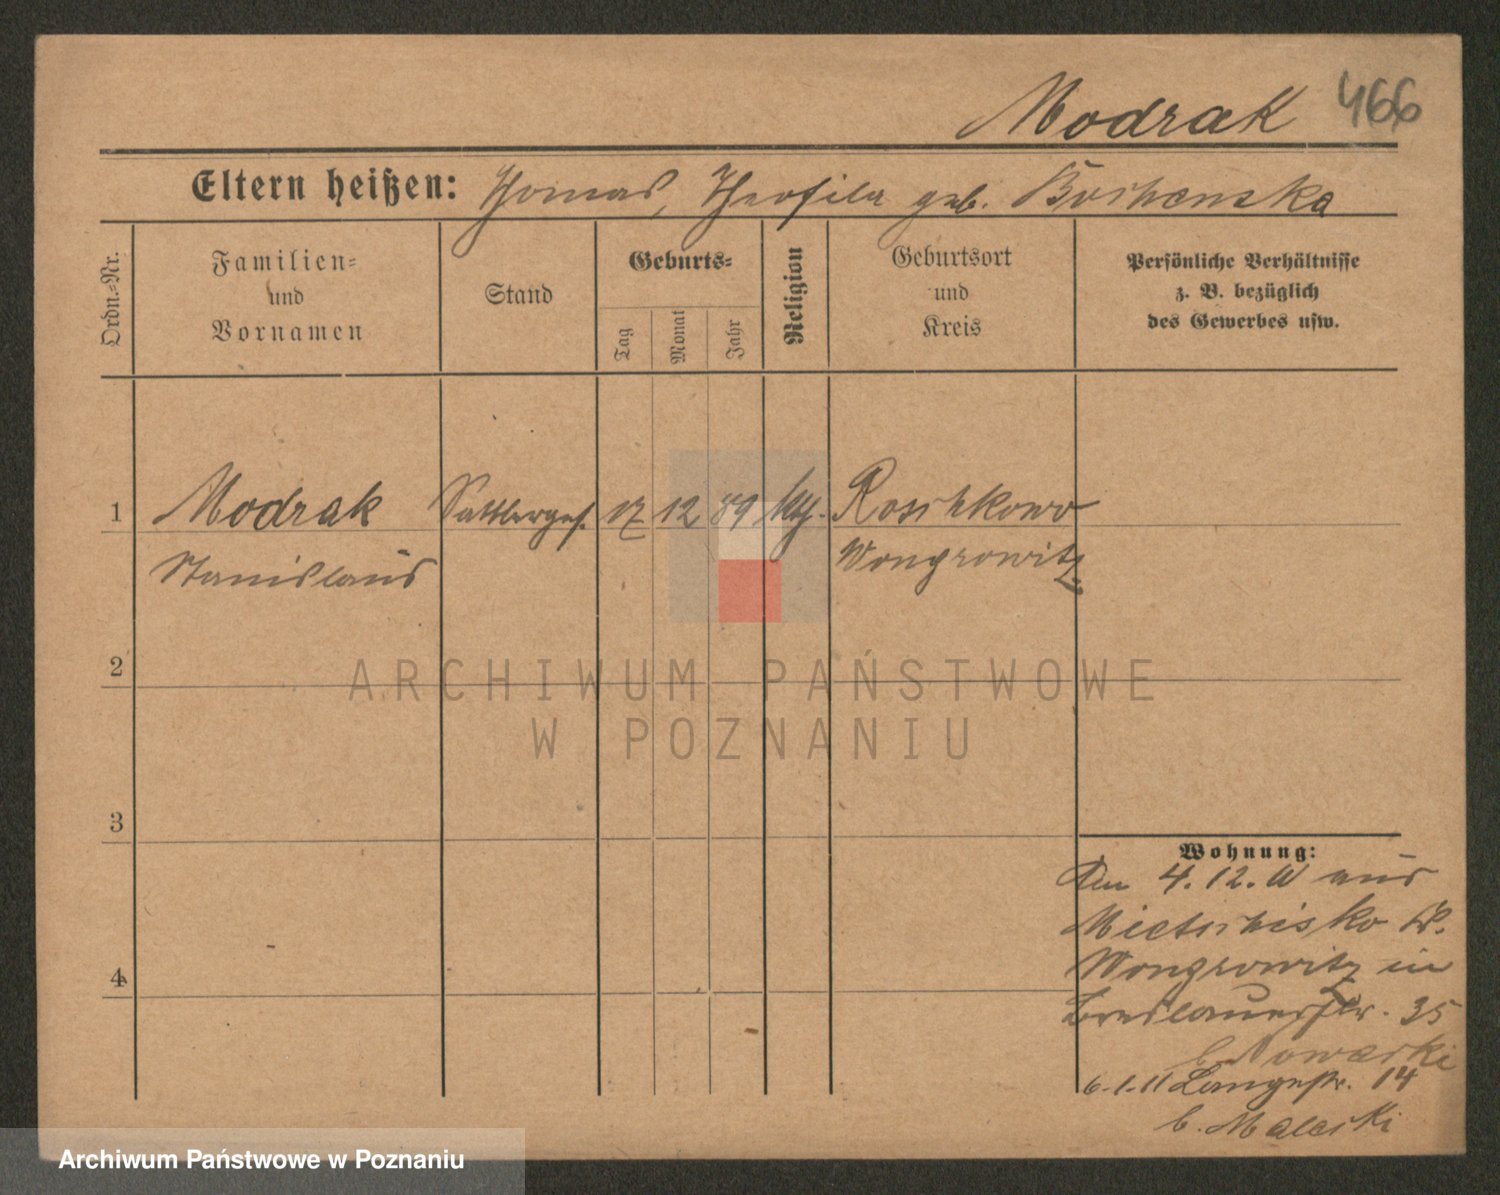 Modrak 466
Eltern heißen: Thomas, Theofila geb.
Ordn.-Nr.
Familien-
und
Vornamen
Stand
Geburts-
Tag
Monat
Jahr
Religion
Geburtsort
und
Kreis
Persönliche Verhältnisse
z. B. bezüglich
des Gewerbes usw.
1 Modrak Sattlerges. 17 12 89 kth. Roschkowo
Stanislaus Wongrowitz
2
ARCHIWUM PAŃSTWOWE
W POZNANIU
3
Wohnung:
Den 4.12. aus
Mietschisko Kr.
4 Wongrowitz in
Breslauerstr. 35
b. Nowacki
6.1.11 Langestr. 14
b. Malecki
Archiwum Państwowe w Poznaniu